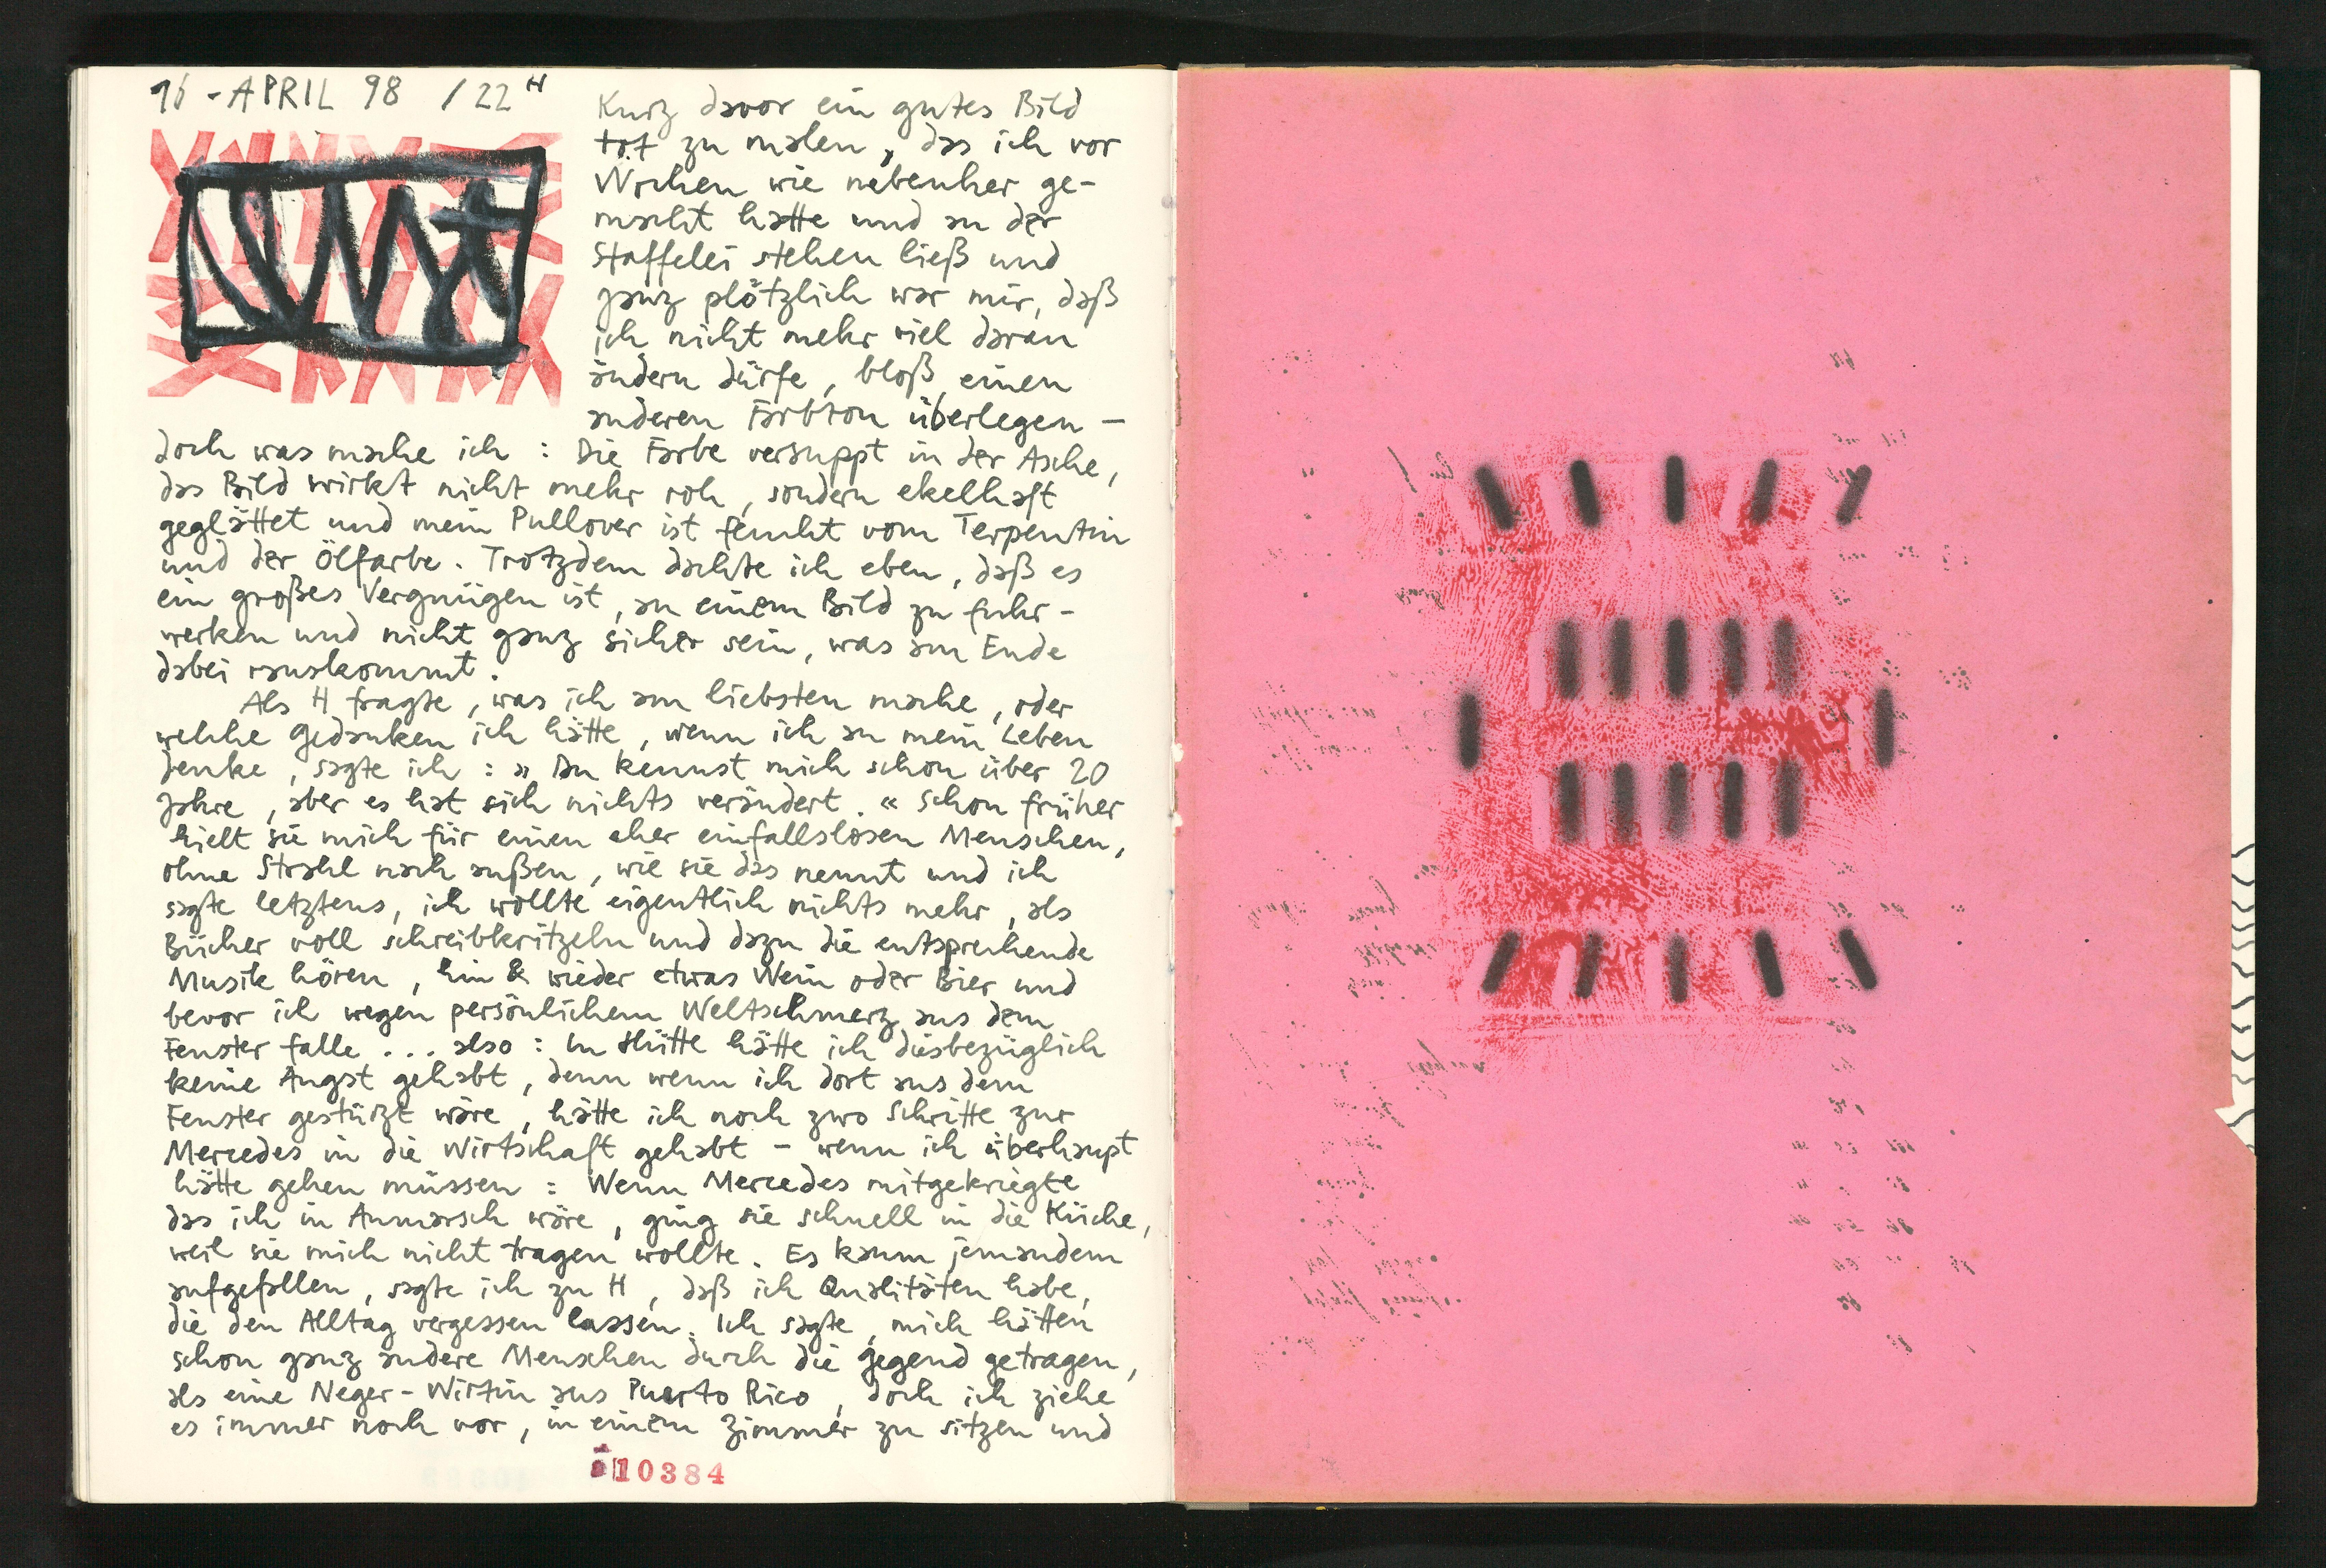 16-APRIL 98 /22H
Kurz davor ein gutes Bild
tot zu malen, das ich vor
Wochen wie nebenher ge-
macht hatte und an der
Staffelei stehen ließ und
ganz plötzlich war mir, daß
ich nicht mehr viel daran
ändern dürfe, bloß einen
anderen Farbton überlegen –
doch was mache ich : Die Farbe versuppt in der Asche,
das Bild wirkt nicht mehr roh, sondern ekelhaft
geglättet und mein Pullover ist feucht vom Terpentin
und der Ölfarbe. Trotzdem dachte ich eben, daß es
ein großes Vergnügen ist, an einem Bild zu fuhr-
werken und nicht ganz sicher sein, was am Ende
dabei rauskommt.
Als H fragte, was ich am liebsten mache, oder
welche Gedanken ich hätte, wenn ich an mein Leben
denke, sagte ich : » Du kennst mich schon über 20
Jahre, aber es hat sich nichts verändert. « Schon früher
hielt sie mich für einen eher einfallslosen Menschen,
ohne Strahl nach außen, wie sie das nennt und ich
sagte letztens, ich wollte eigentlich nichts mehr, als
Bücher voll schreibkritzeln und dazu die entsprechende
Musik hören, hin & wieder etwas Wein oder Bier und
bevor ich wegen persönlichem Weltschmerz aus dem
Fenster falle ... also : In Hütte hätte ich diesbezüglich
keine Angst gehabt, denn wenn ich dort aus dem
Fenster gestürzt wäre, hätte ich noch zwo Schritte zur
Mercedes in die Wirtschaft gehabt – wenn ich überhaupt
hätte gehen müssen : Wenn Mercedes mitgekriegte
das ich in Anmarsch wäre, ging sie schnell in die Küche,
weil sie mich nicht tragen wollte. Es kaum jemandem
aufgefallen, sagte ich zu H, daß ich Qualitäten habe,
die den Alltag vergessen lassen. Ich sagte, mich hätten
schon ganz andere Menschen durch die Gegend getragen,
als eine Neger-Wirtin aus Puerto Rico, doch ich ziehe
es immer noch vor, in einem Zimmer zu sitzen und
10384